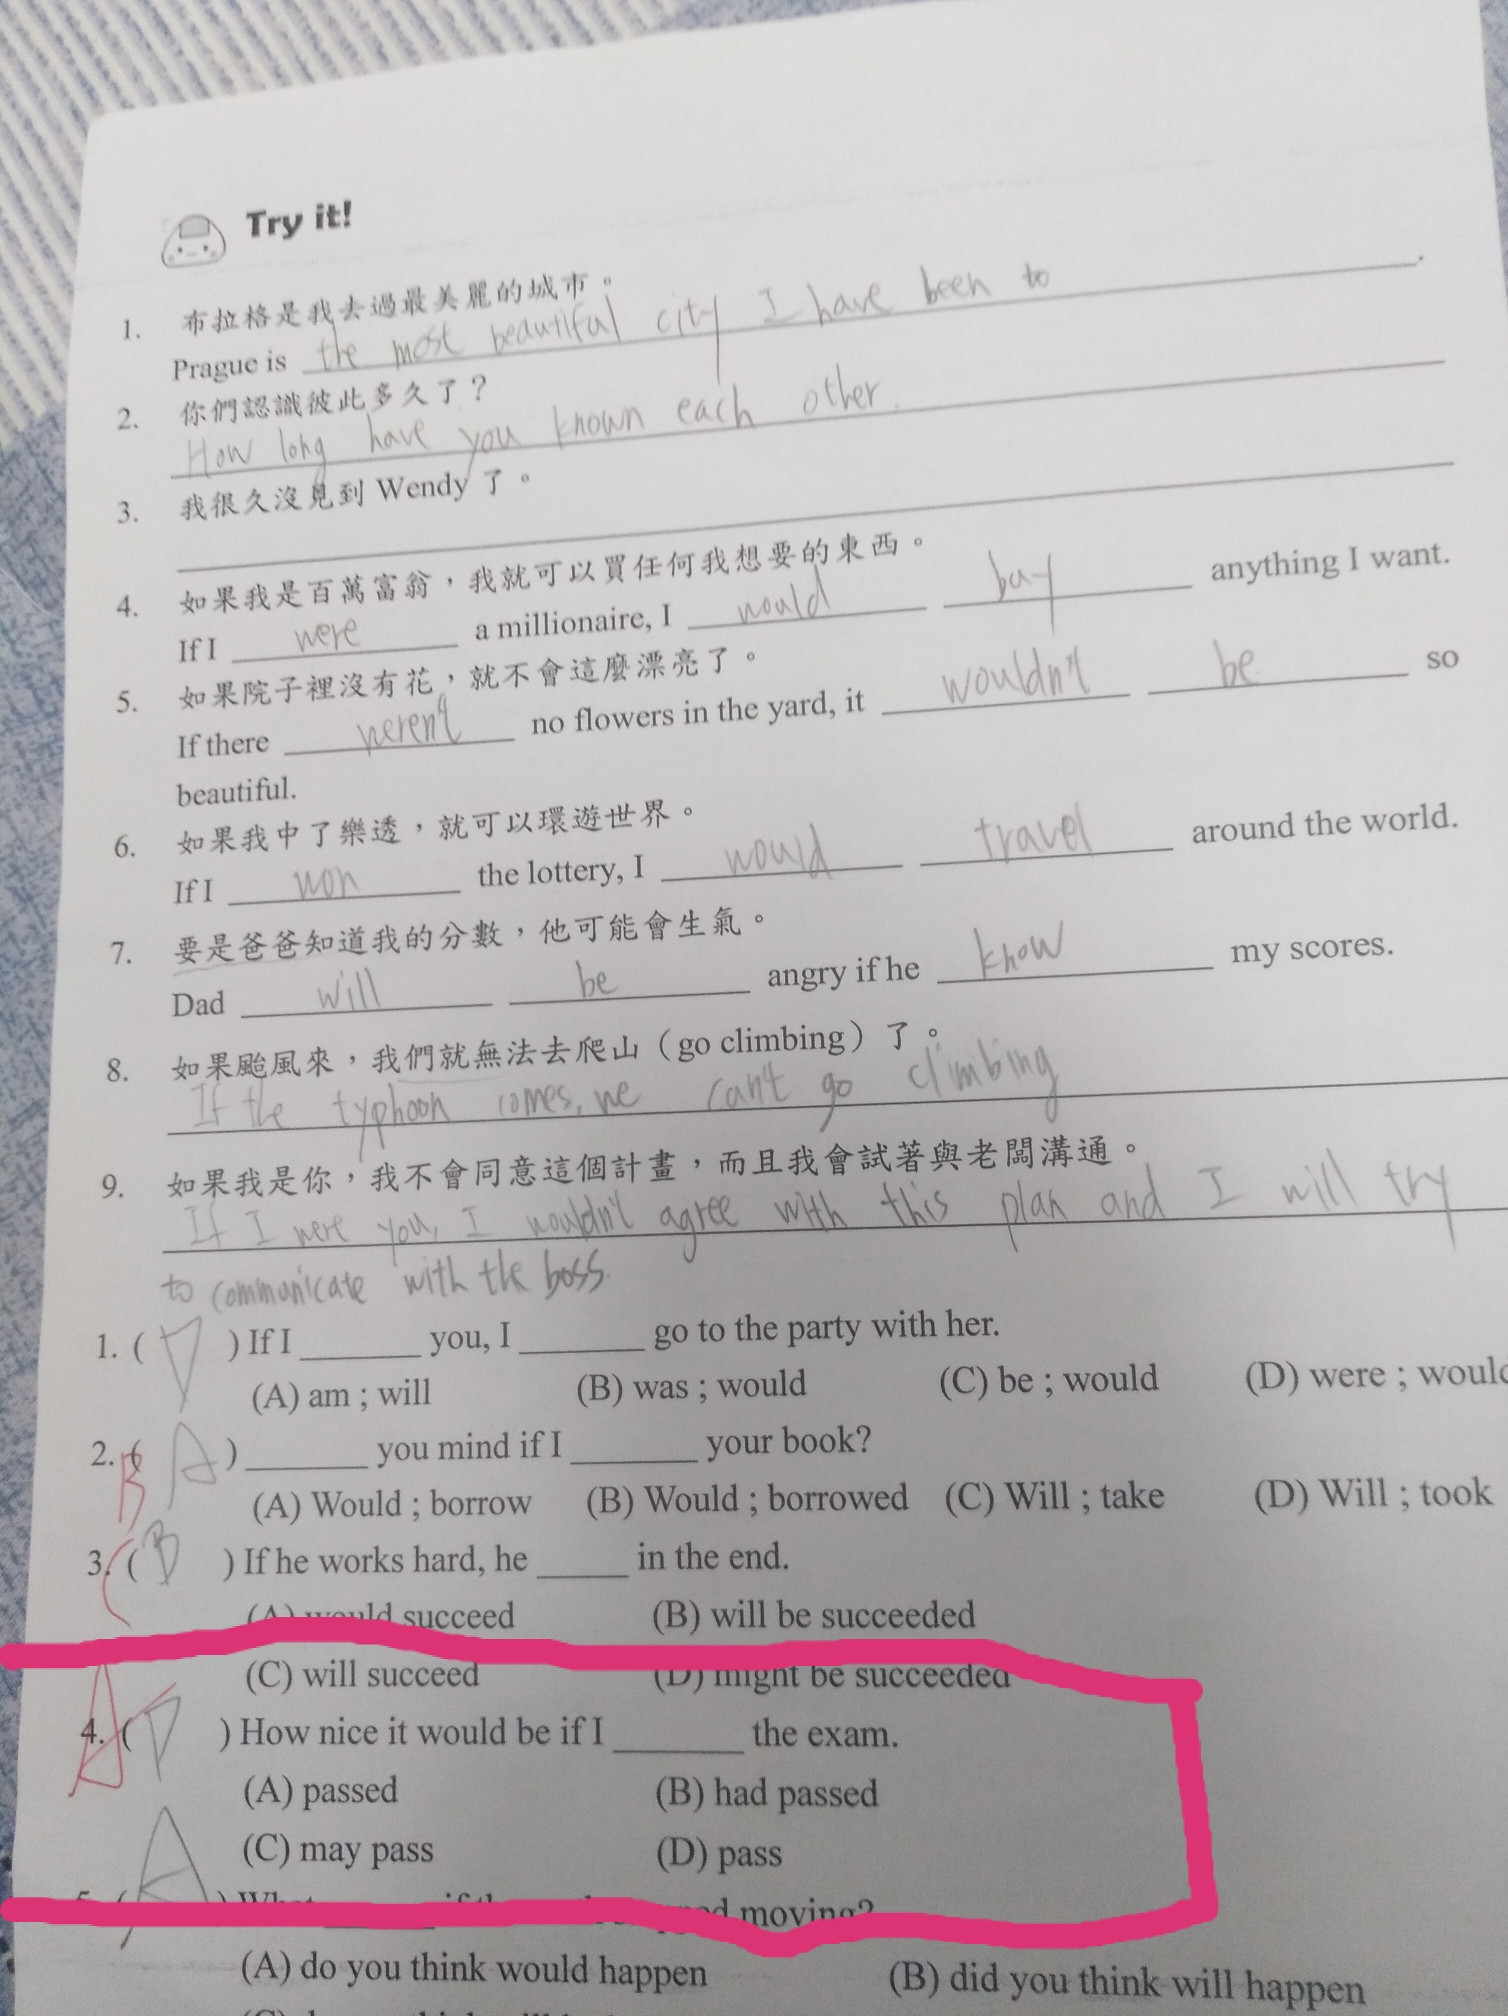 Try it!
1. 布拉格是我去過最美麗的城市。
Prague is the most beautiful city I have been to.
2. 你們認識彼此多久了？
How long have you known each other.
3. 我很久沒見到 Wendy 了。
4. 如果我是百萬富翁，我就可以買任何我想要的東西。
If I were a millionaire, I would buy anything I want.
5. 如果院子裡沒有花，就不會這麼漂亮了。
If there weren't no flowers in the yard, it wouldn't be so
beautiful.
6. 如果我中了樂透，就可以環遊世界。
If I won the lottery, I would travel around the world.
7. 要是爸爸知道我的分數，他可能會生氣。
Dad will be angry if he know my scores.
8. 如果颱風來，我們就無法去爬山（go climbing）了。
If the typhoon comes, we can't go climbing
9. 如果我是你，我不會同意這個計畫，而且我會試著與老闆溝通。
If I were you, I wouldn't agree with this plan and I will try
to communicate with the boss.
1. ( D ) If I ______ you, I ______ go to the party with her.
(A) am ; will (B) was ; would (C) be ; would (D) were ; would
2. ( A ) ______ you mind if I ______ your book?
B
(A) Would ; borrow (B) Would ; borrowed (C) Will ; take (D) Will ; took
3. ( B ) If he works hard, he _____ in the end.
C
(A) would succeed (B) will be succeeded
(C) will succeed (D) might be succeeded
4. ( D ) How nice it would be if I ______ the exam.
A
(A) passed (B) had passed
(C) may pass (D) pass
5. ( A ) What ______ moving?
(A) do you think would happen (B) did you think will happen